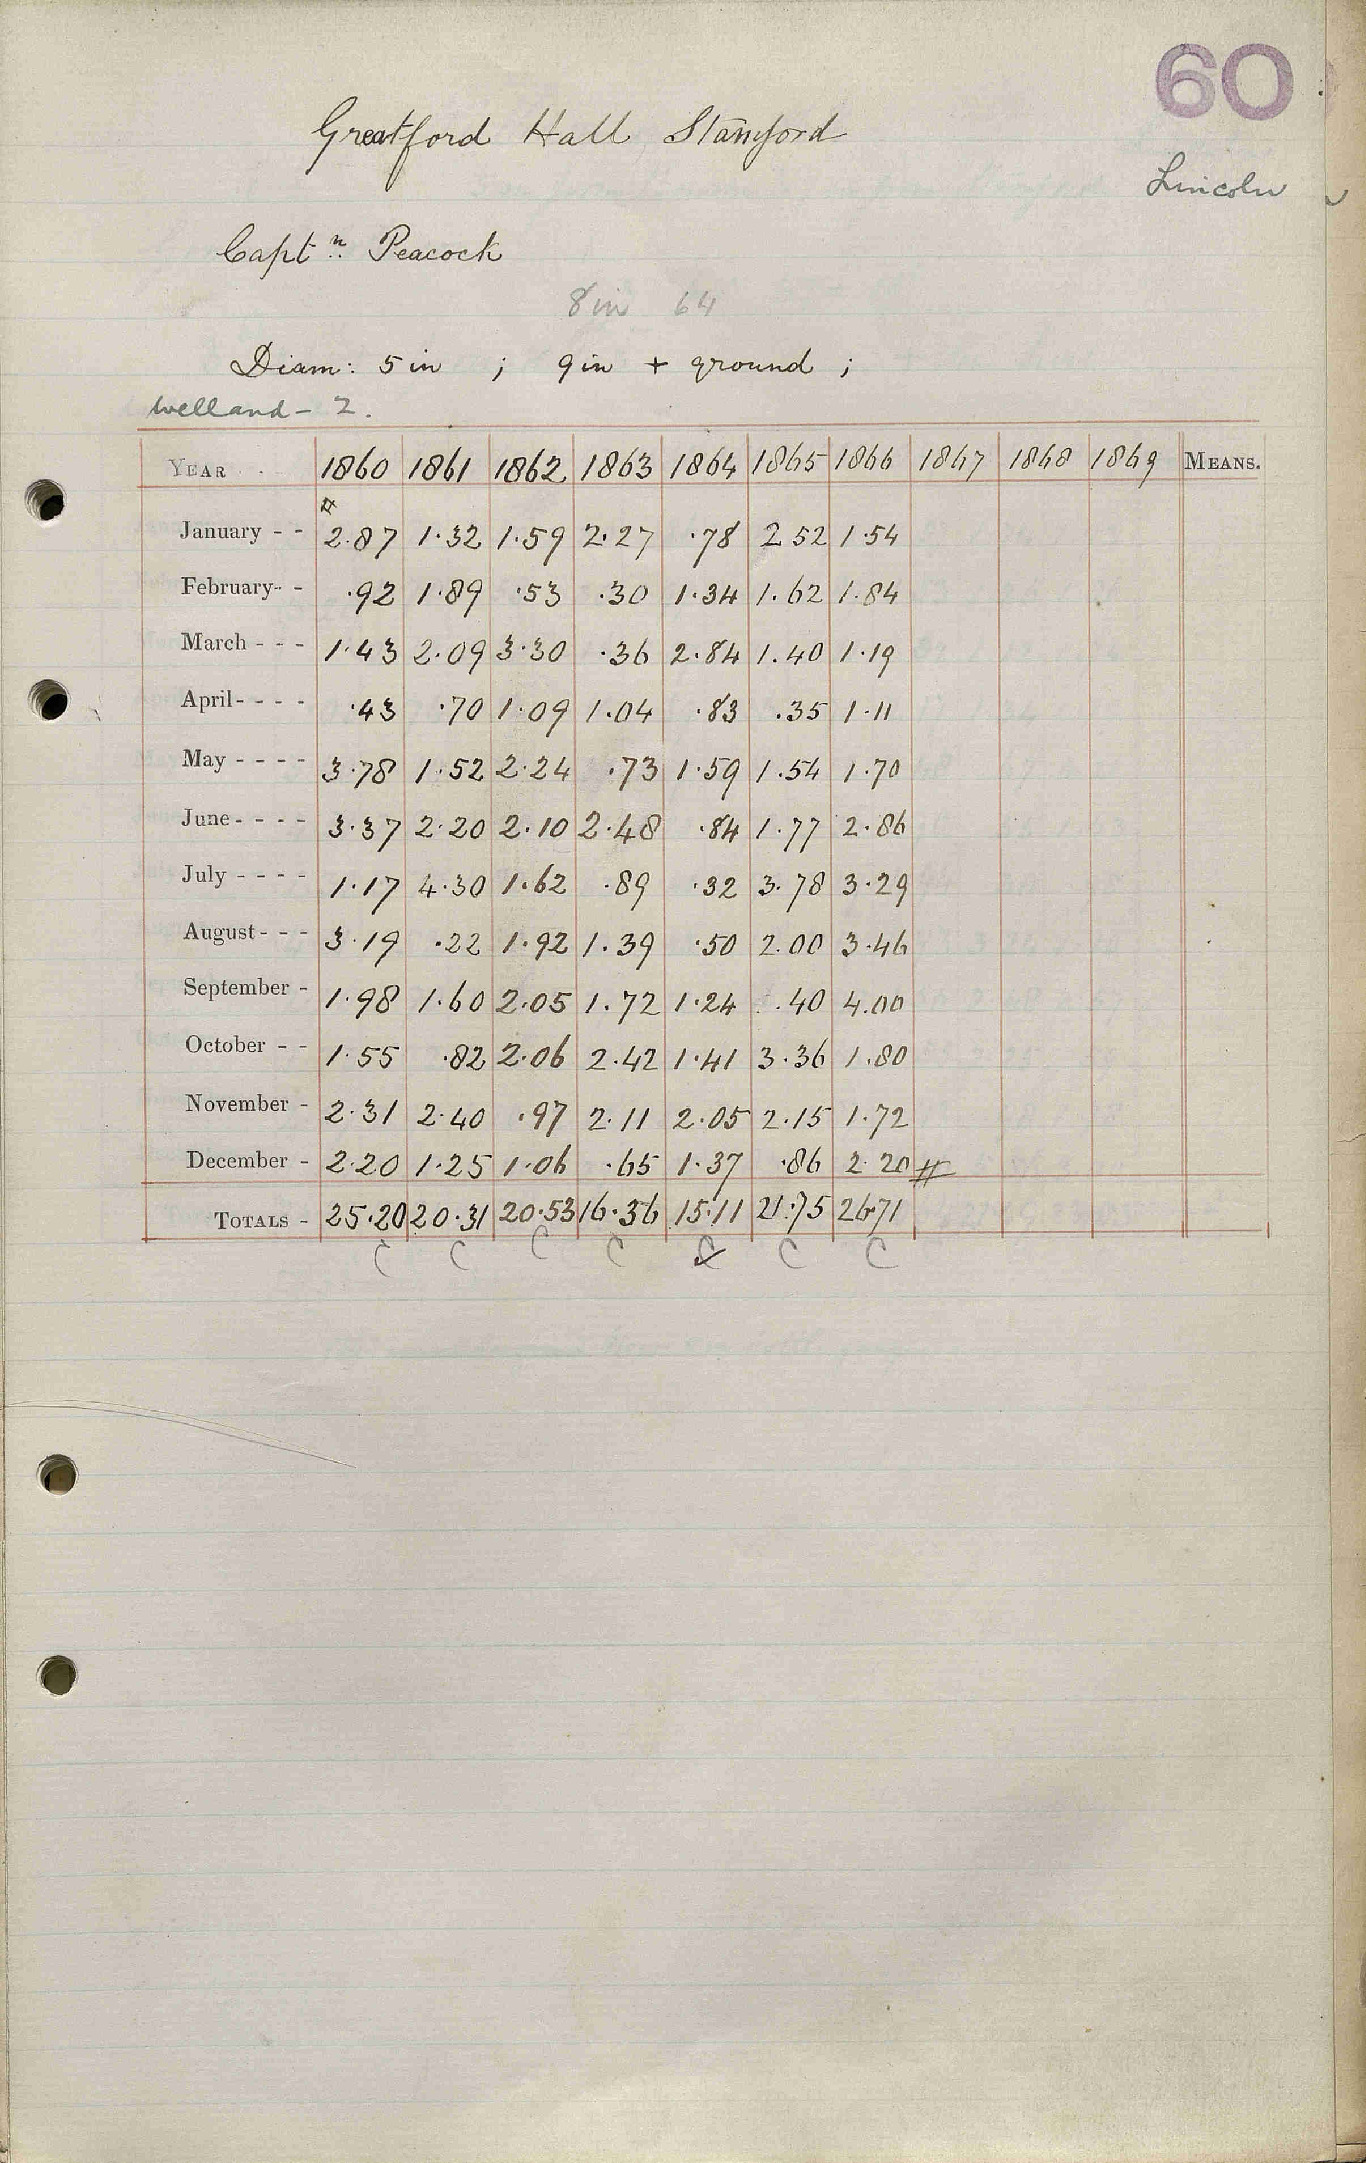 60
Greatford Hall Stamford
Lincoln
Captn. Peacock
8 in 64
Diam: 5 in ; 9 in + ground ;
Welland - 2.
YEAR 1860 1861 1862 1863 1864 1865 1866 1867 1868 1869 MEANS.
January - - 2.87 1.32 1.59 2.27 .78 2.52 1.54
February - - .92 1.89 .53 .30 1.34 1.62 1.84
March - - - 1.43 2.09 3.30 .36 2.84 1.40 1.19
April - - - - .43 .70 1.09 1.04 .83 .35 1.11
May - - - - 3.78 1.52 2.24 .73 1.59 1.54 1.70
June - - - - 3.37 2.20 2.10 2.48 .84 1.77 2.86
July - - - - 1.17 4.30 1.62 .89 .32 3.78 3.29
August - - - 3.19 .22 1.92 1.39 .50 2.00 3.46
September - 1.98 1.60 2.05 1.72 1.24 .40 4.00
October - - 1.55 .82 2.06 2.42 1.41 3.36 1.80
November - 2.31 2.40 .97 2.11 2.05 2.15 1.72
December - 2.20 1.25 1.06 .65 1.37 .86 2.20 #
TOTALS - 25.20 20.31 20.53 16.36 15.11 21.75 26.71
C C C C C C C